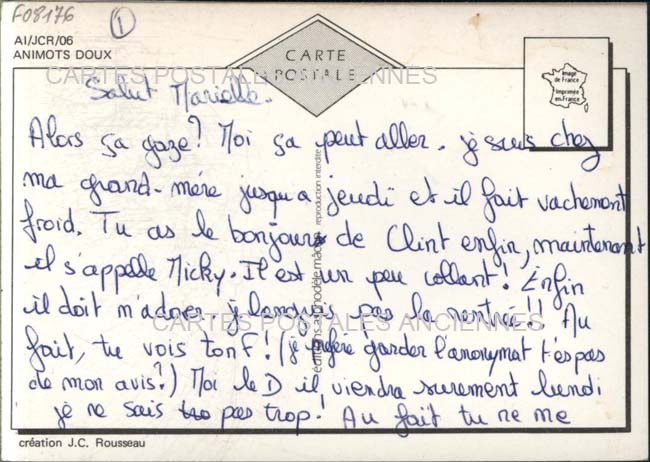 F08176
1
AI/JCR/06
ANIMOTS DOUX
CARTE
POSTALE
Image
de France
Imprimée
en France
CARTES POSTALES ANCIENNES
Salut Marielle.
Alors ça gaze? Moi ça peut aller. je suis chez
ma grand-mère jusqu'a jeudi et il fait vachement
froid. Tu as le bonjour de Clint enfin, maintenant
il s'appelle Micky. Il est un peu collant! Enfin
il doit m'adorer. j'languis pas la rentrée!! Au
CARTES POSTALES ANCIENNES
fait, tu vois ton F! (je préfère garder l'anonymat t'es pas
de mon avis?) Moi le D il viendra surement lundi
je ne sais pas trop! Au fait tu ne me
reproduction interdite
création J.C. Rousseau